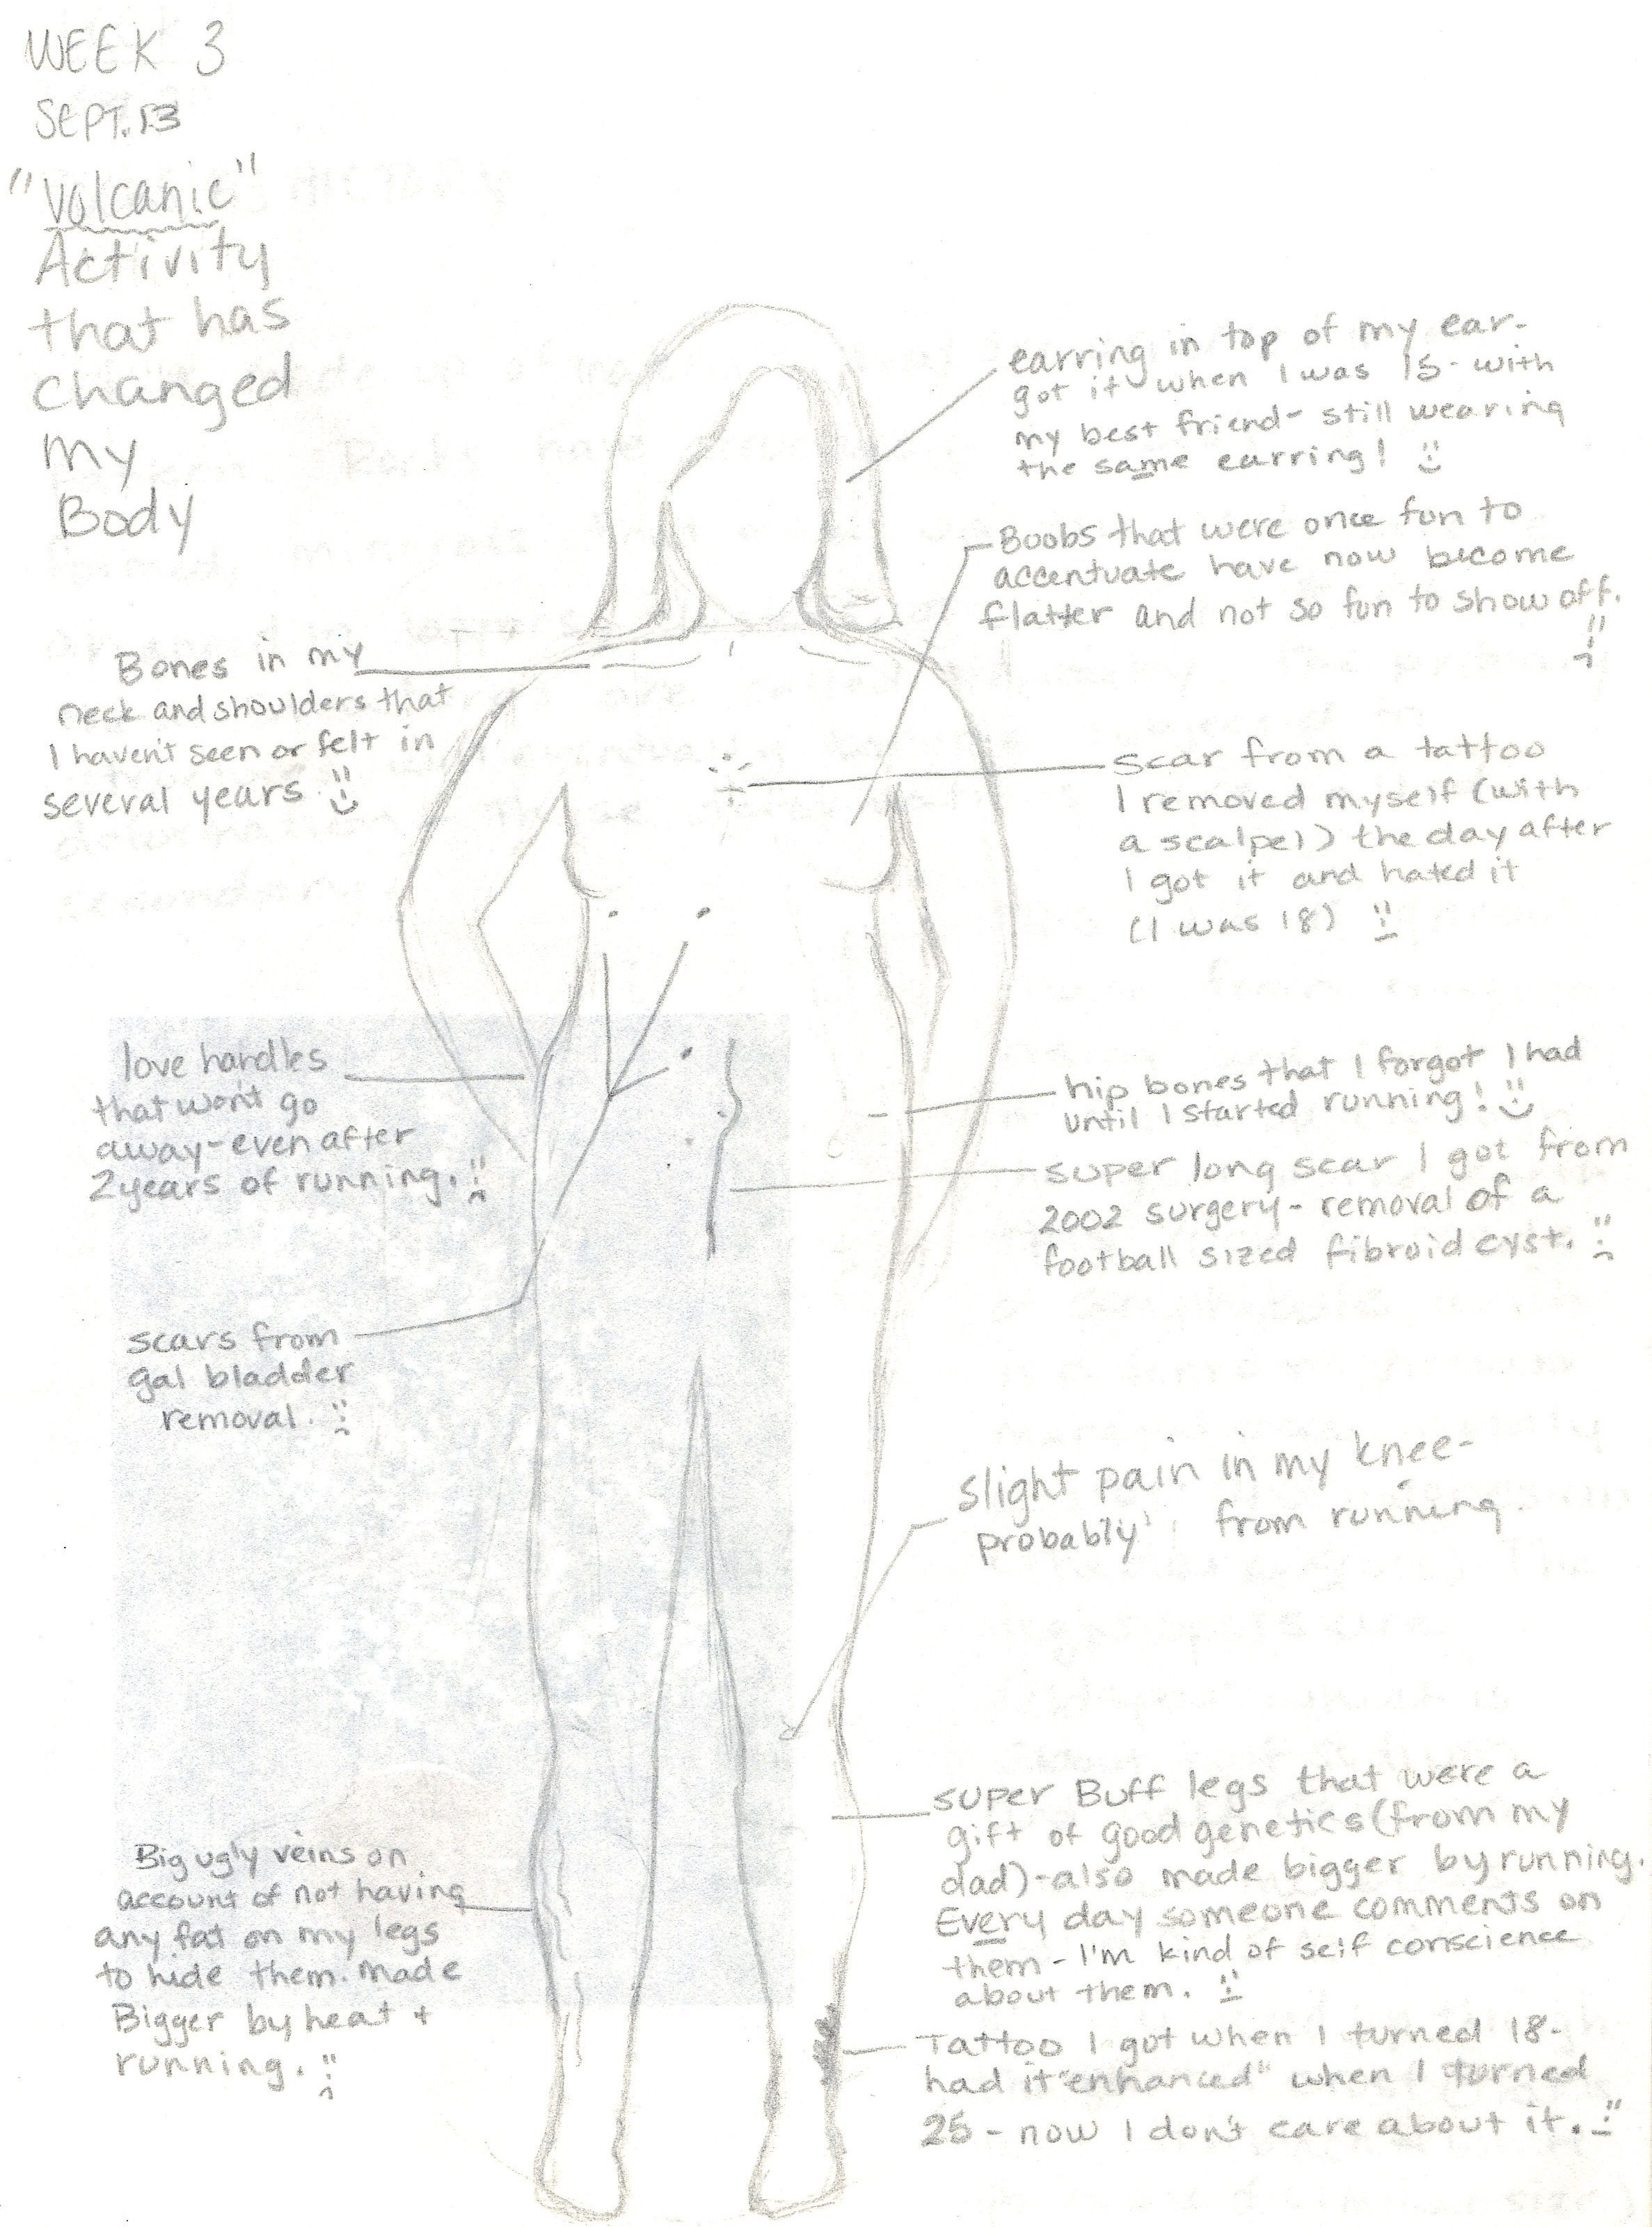 WEEK 3
SEPT. 13
"Volcanic"
Activity
that has
changed
my
Body
earring in top of my ear-
got it when I was 15- with
my best friend- still wearing
the same earring!
Boobs that were once fun to
accentuate have now become
flatter and not so fun to show off.
Bones in my
neck and shoulders that
I haven't seen or felt in
several years
scar from a tattoo
I removed myself (with
a scalpel) the day after
I got it and hated it
(I was 18)
love handles
that won't go
away-even after
2 years of running.
hip bones that I forgot I had
until I started running!
super long scar I got from
2002 surgery- removal of a
football sized fibroid cyst.
scars from
gal bladder
removal.
slight pain in my knee-
probably from running.
super Buff legs that were a
gift of good genetics (from my
dad)-also made bigger by running.
Every day someone comments on
them- I'm kind of self conscience
about them.
Big ugly veins on
account of not having
any fat on my legs
to hide them. made
Bigger by heat +
running.
Tattoo I got when I turned 18-
had it "enhanced" when I turned
25- now I don't care about it.